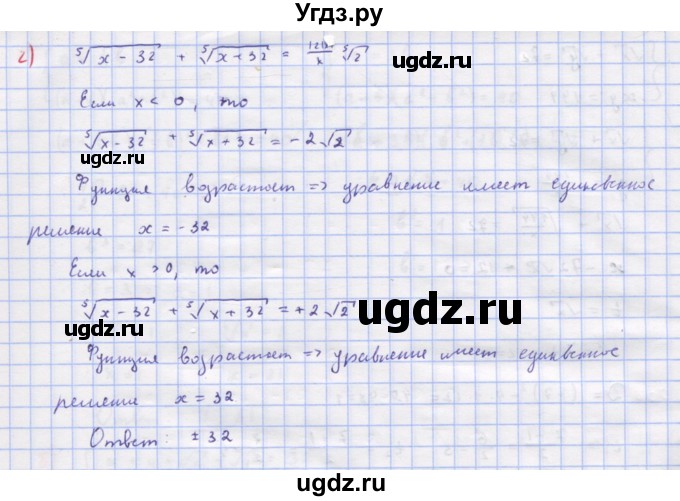 Угдз.ру
2) ⁵√(x - 32) + ⁵√(x + 32) = 12|x|/x ⁵√2
Если x < 0, то
⁵√(x - 32) + ⁵√(x + 32) = -2 √2
ugdz.ru
ugdz.ru
Функция возрастает => уравнение имеет единственное
решение x = -32
Если x > 0, то
ugdz.ru
⁵√(x - 32) + ⁵√(x + 32) = +2 √2
ugdz.ru
Функция возрастает => уравнение имеет единственное
решение x = 32
ugdz.ru
Ответ: ± 32
ugdz.ru
ugdz.ru